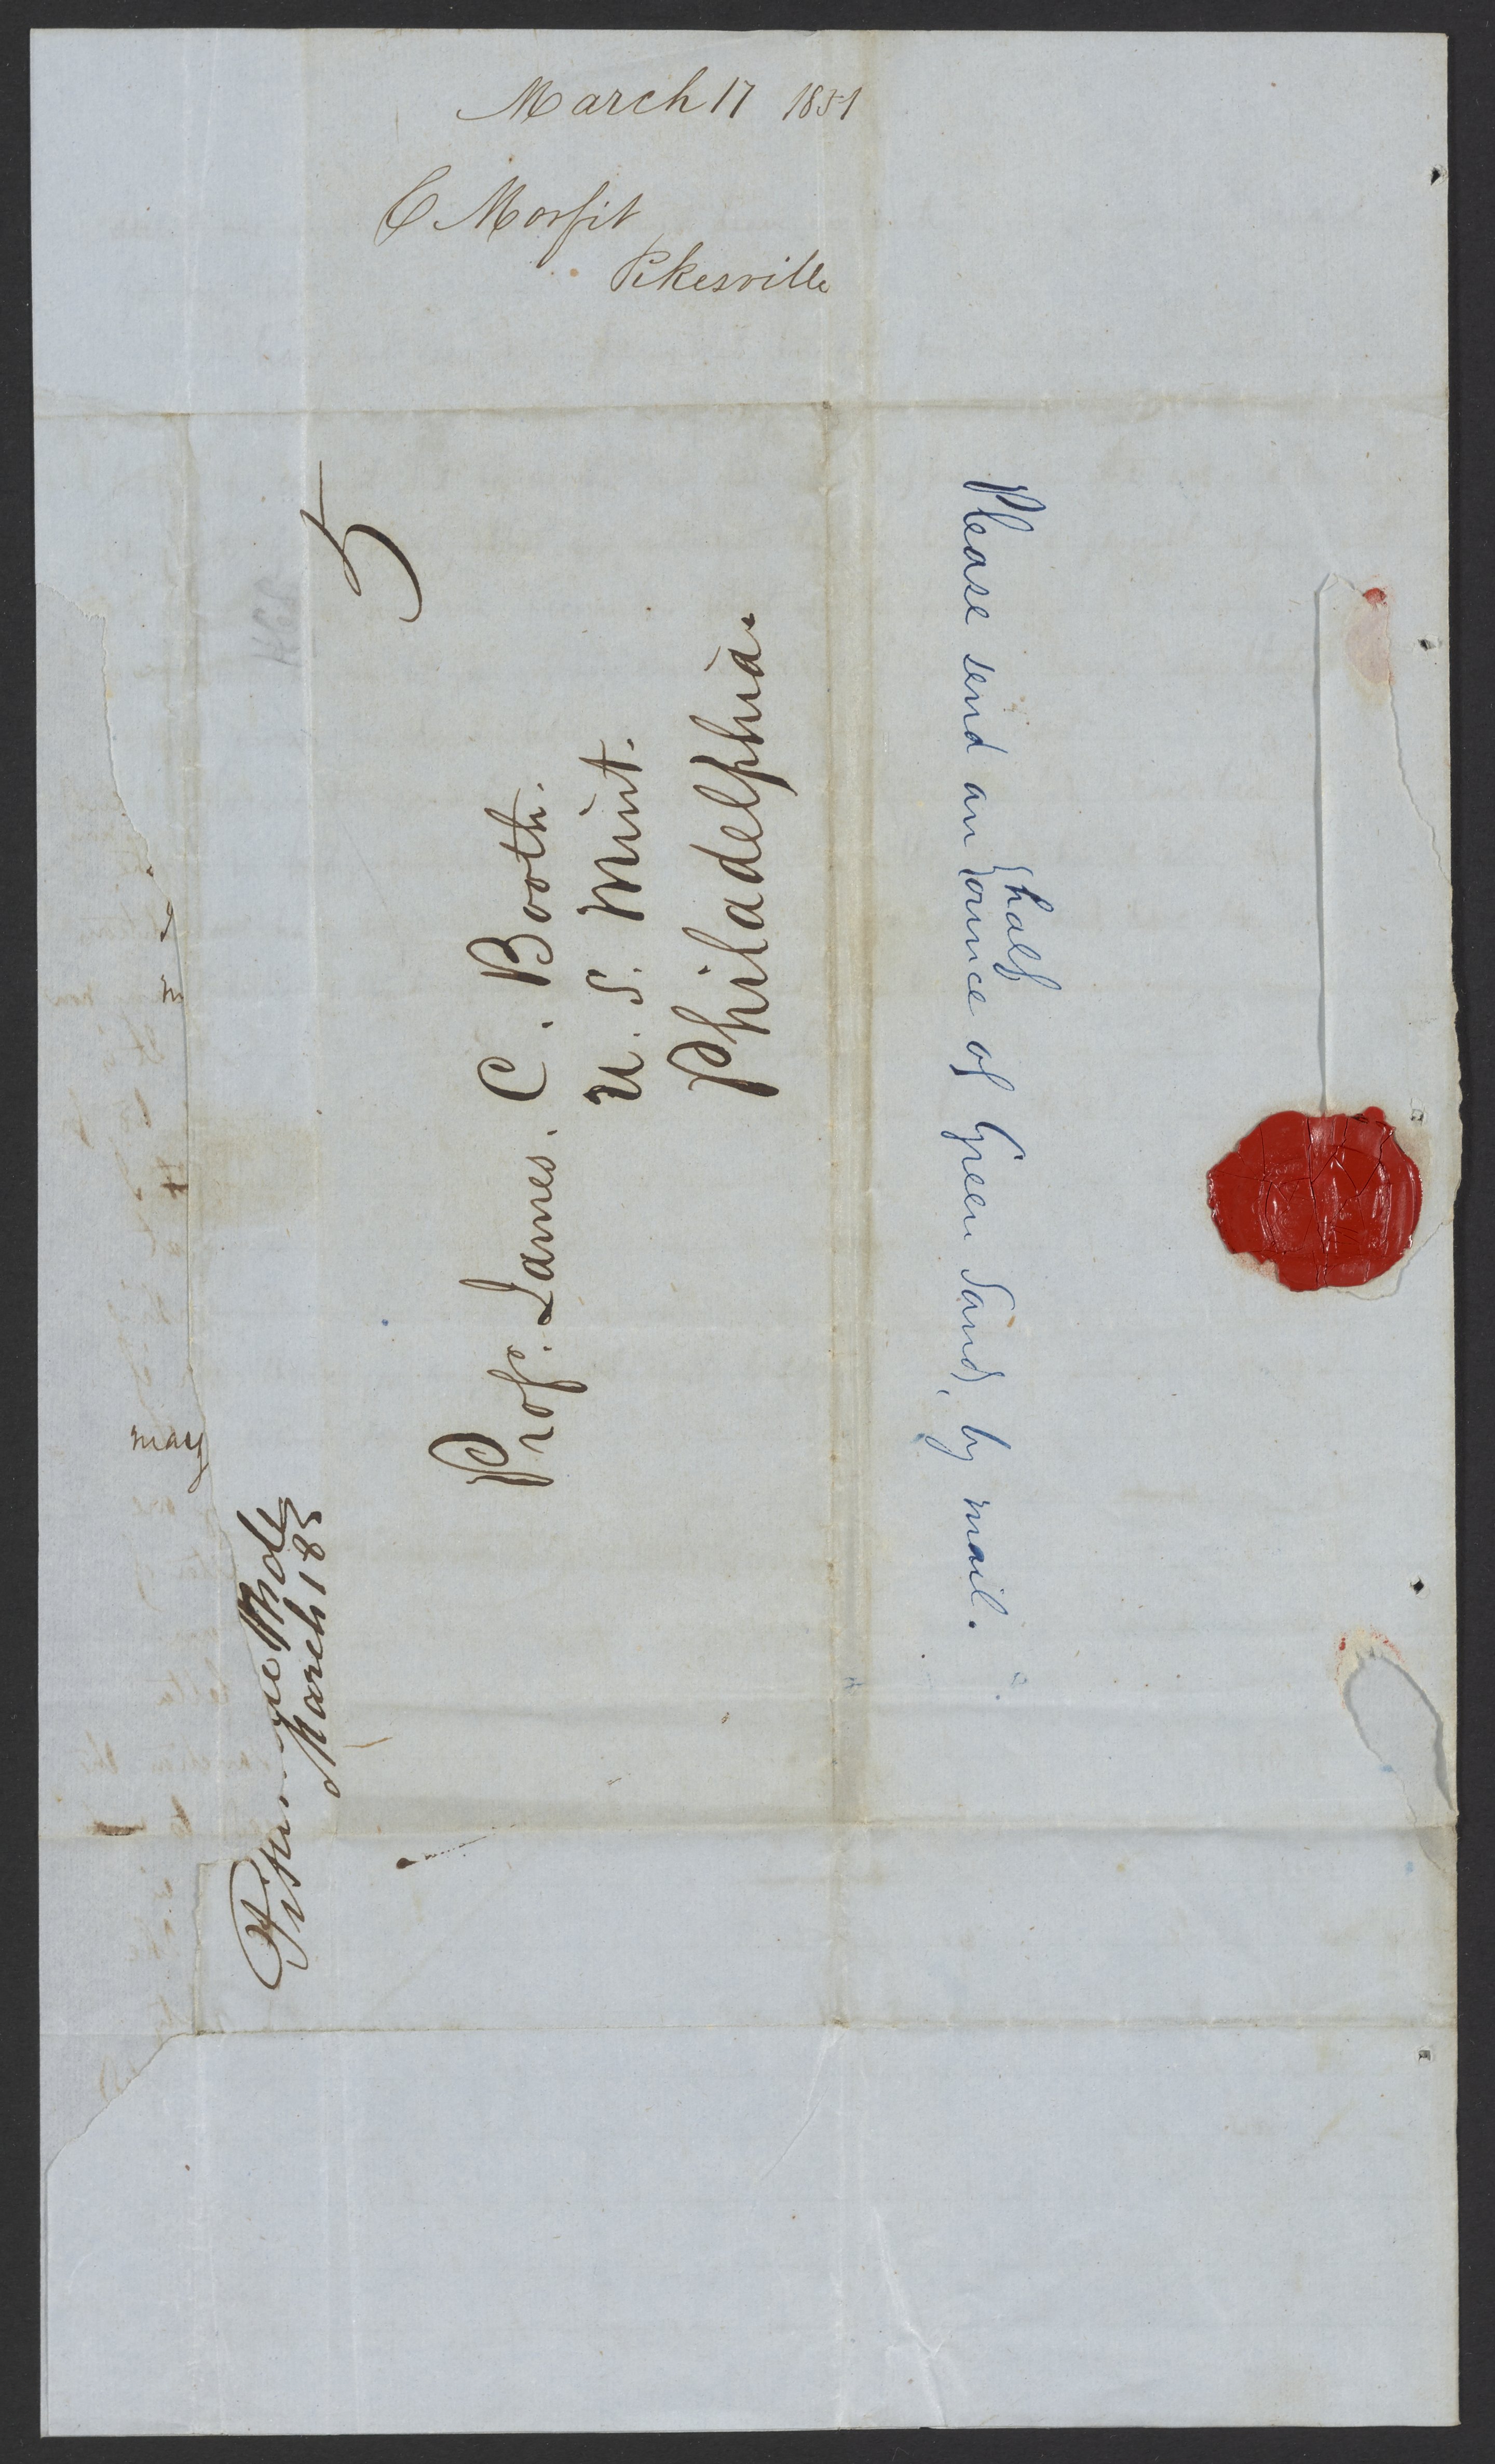 March 17 1851
C Morfit
Pikesville
5
Prof. James. C. Booth.
U. S. Mint.
Philadelphia.
Please send an half ounce of Green Sand, by mail.
Md
March 18
may